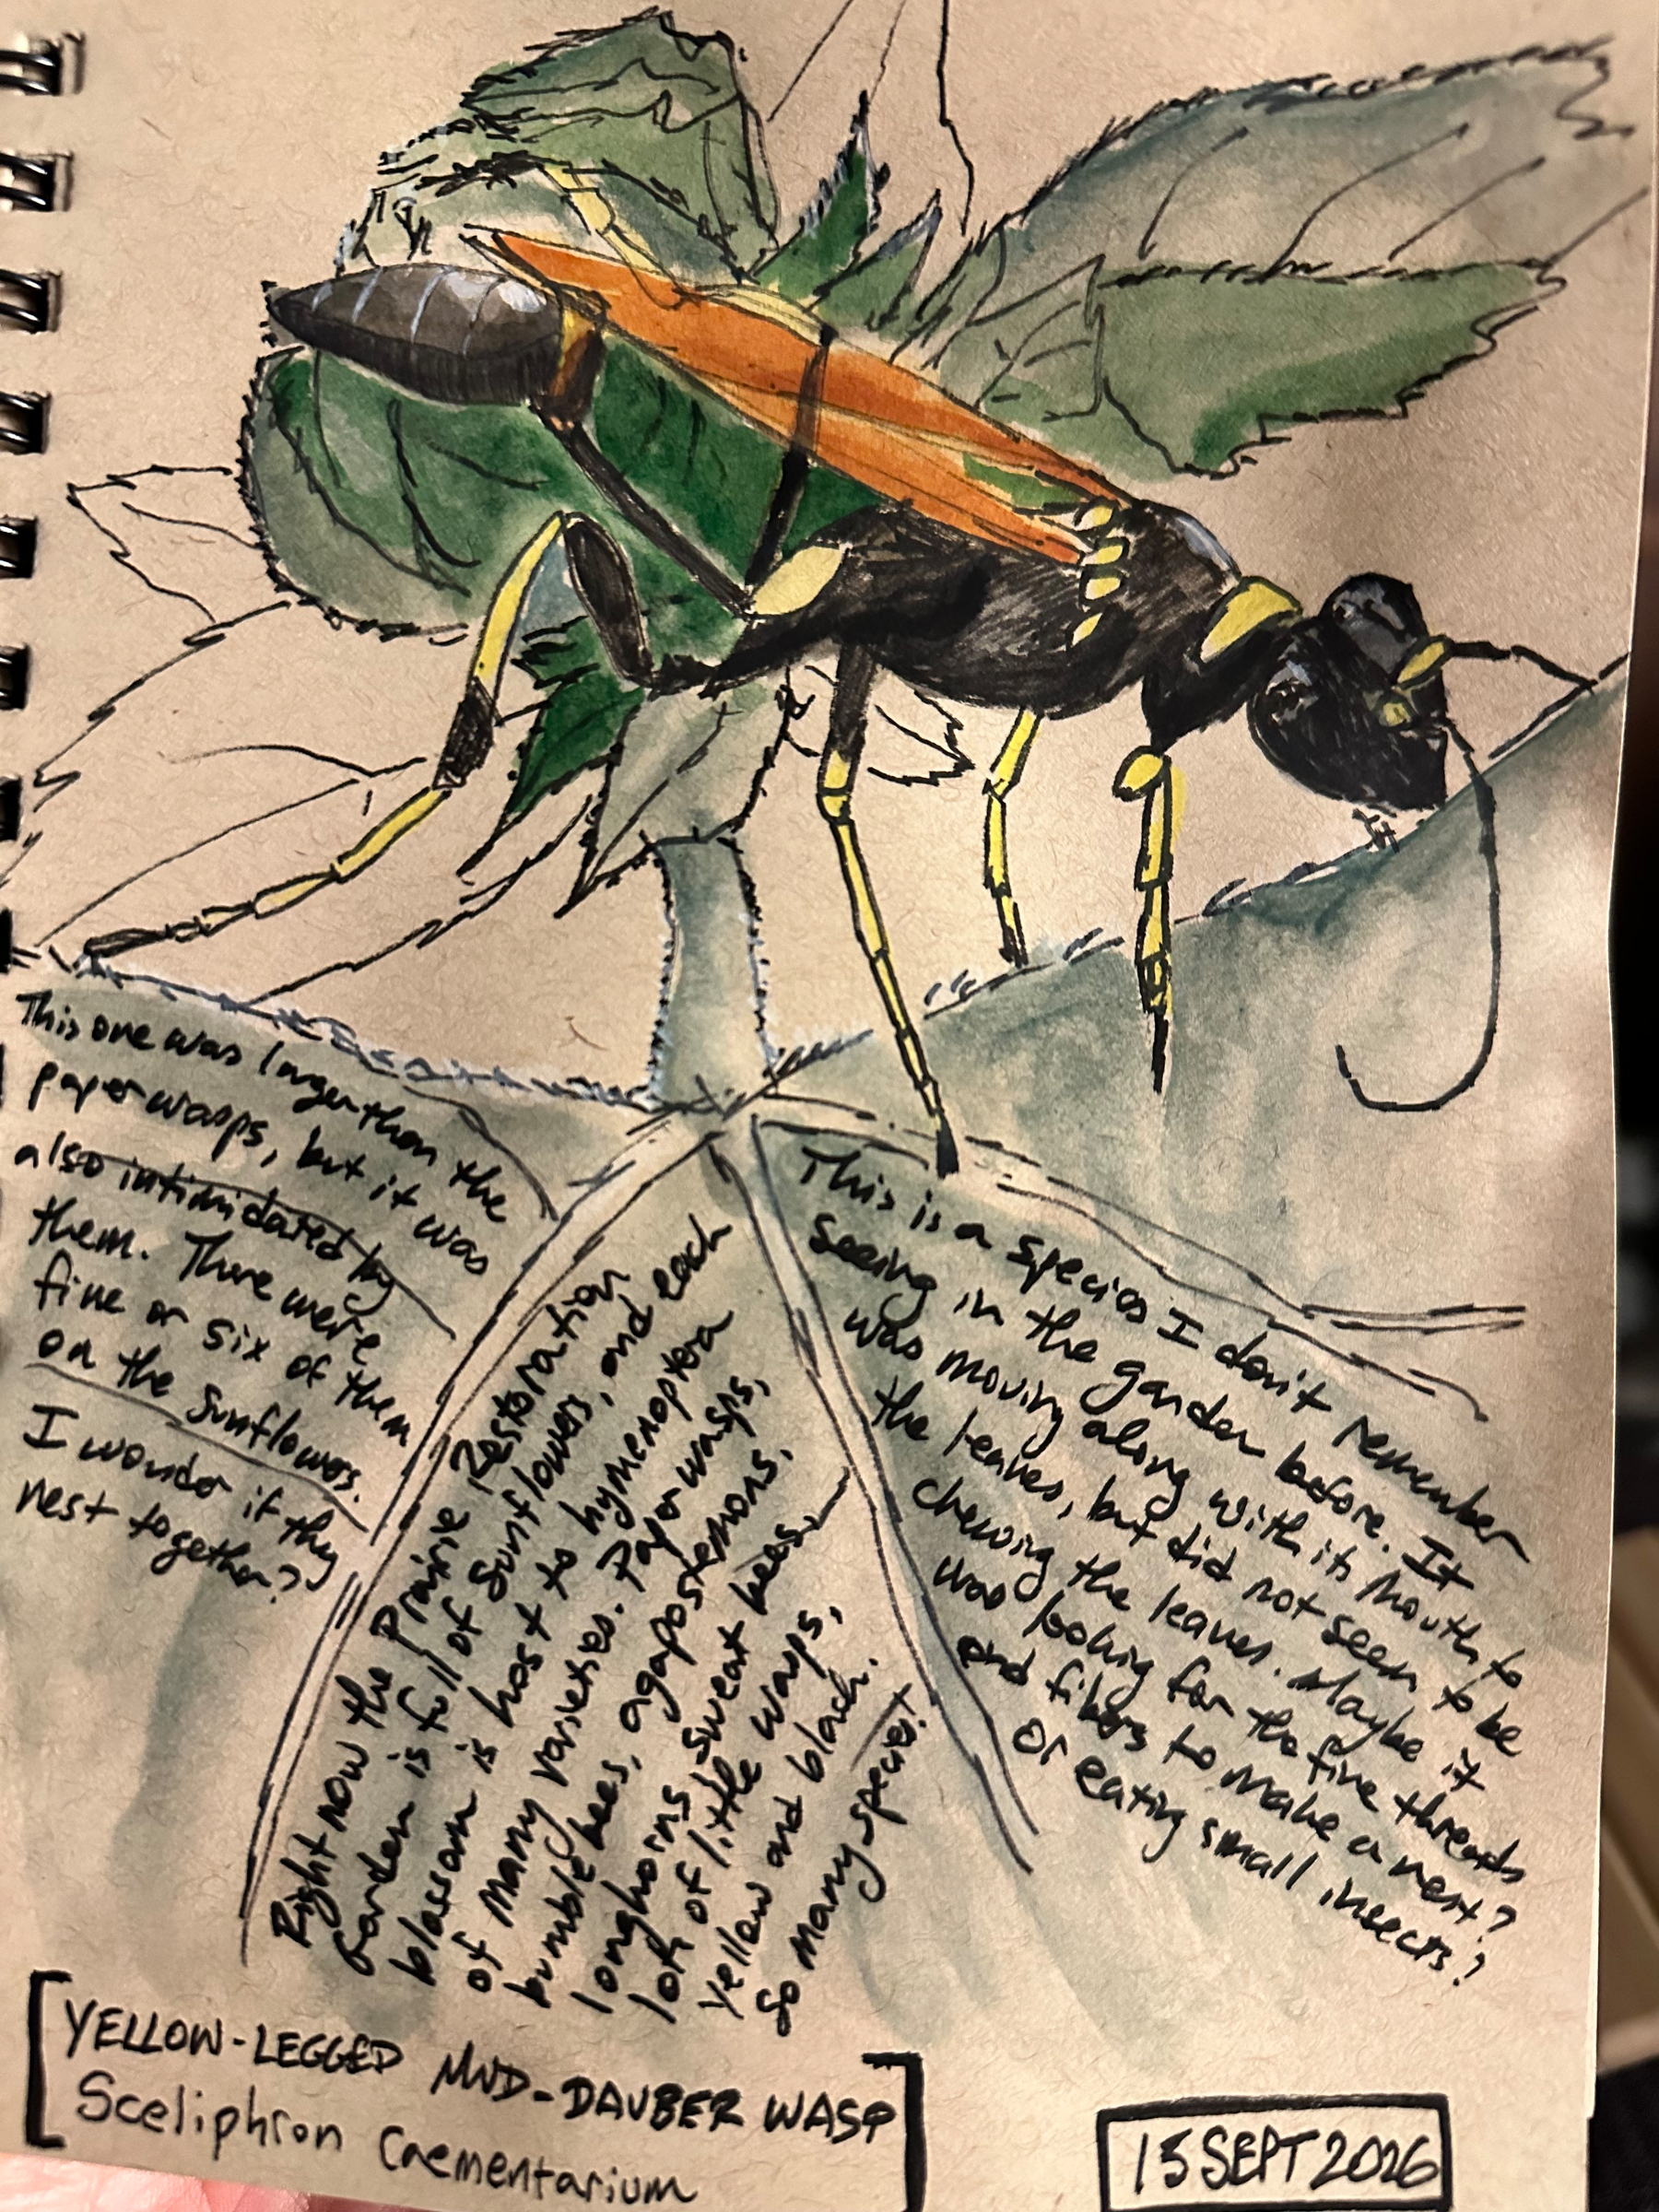 This one was larger than the
paper wasps, but it was
also intimidated by
them. There were
five or six of them
on the sunflowers.
I wonder if they
nest together?
Right now the Prairie Restoration
Garden is full of sunflowers, and each
blossom is host to hymenoptera
of many varieties. Paper wasps,
bumble bees, agapostemons,
longhorns, sweat bees,
lots of little wasps,
yellow and black.
So many species!
This is a species I don't remember
seeing in the garden before. It
was moving along with its mouth to
the leaves, but did not seem to be
chewing the leaves. Maybe it
was looking for the fine threads
and fibers to make a nest?
Or eating small insects?
YELLOW-LEGGED MUD-DAUBER WASP
Sceliphron Caementarium
15 SEPT 2026